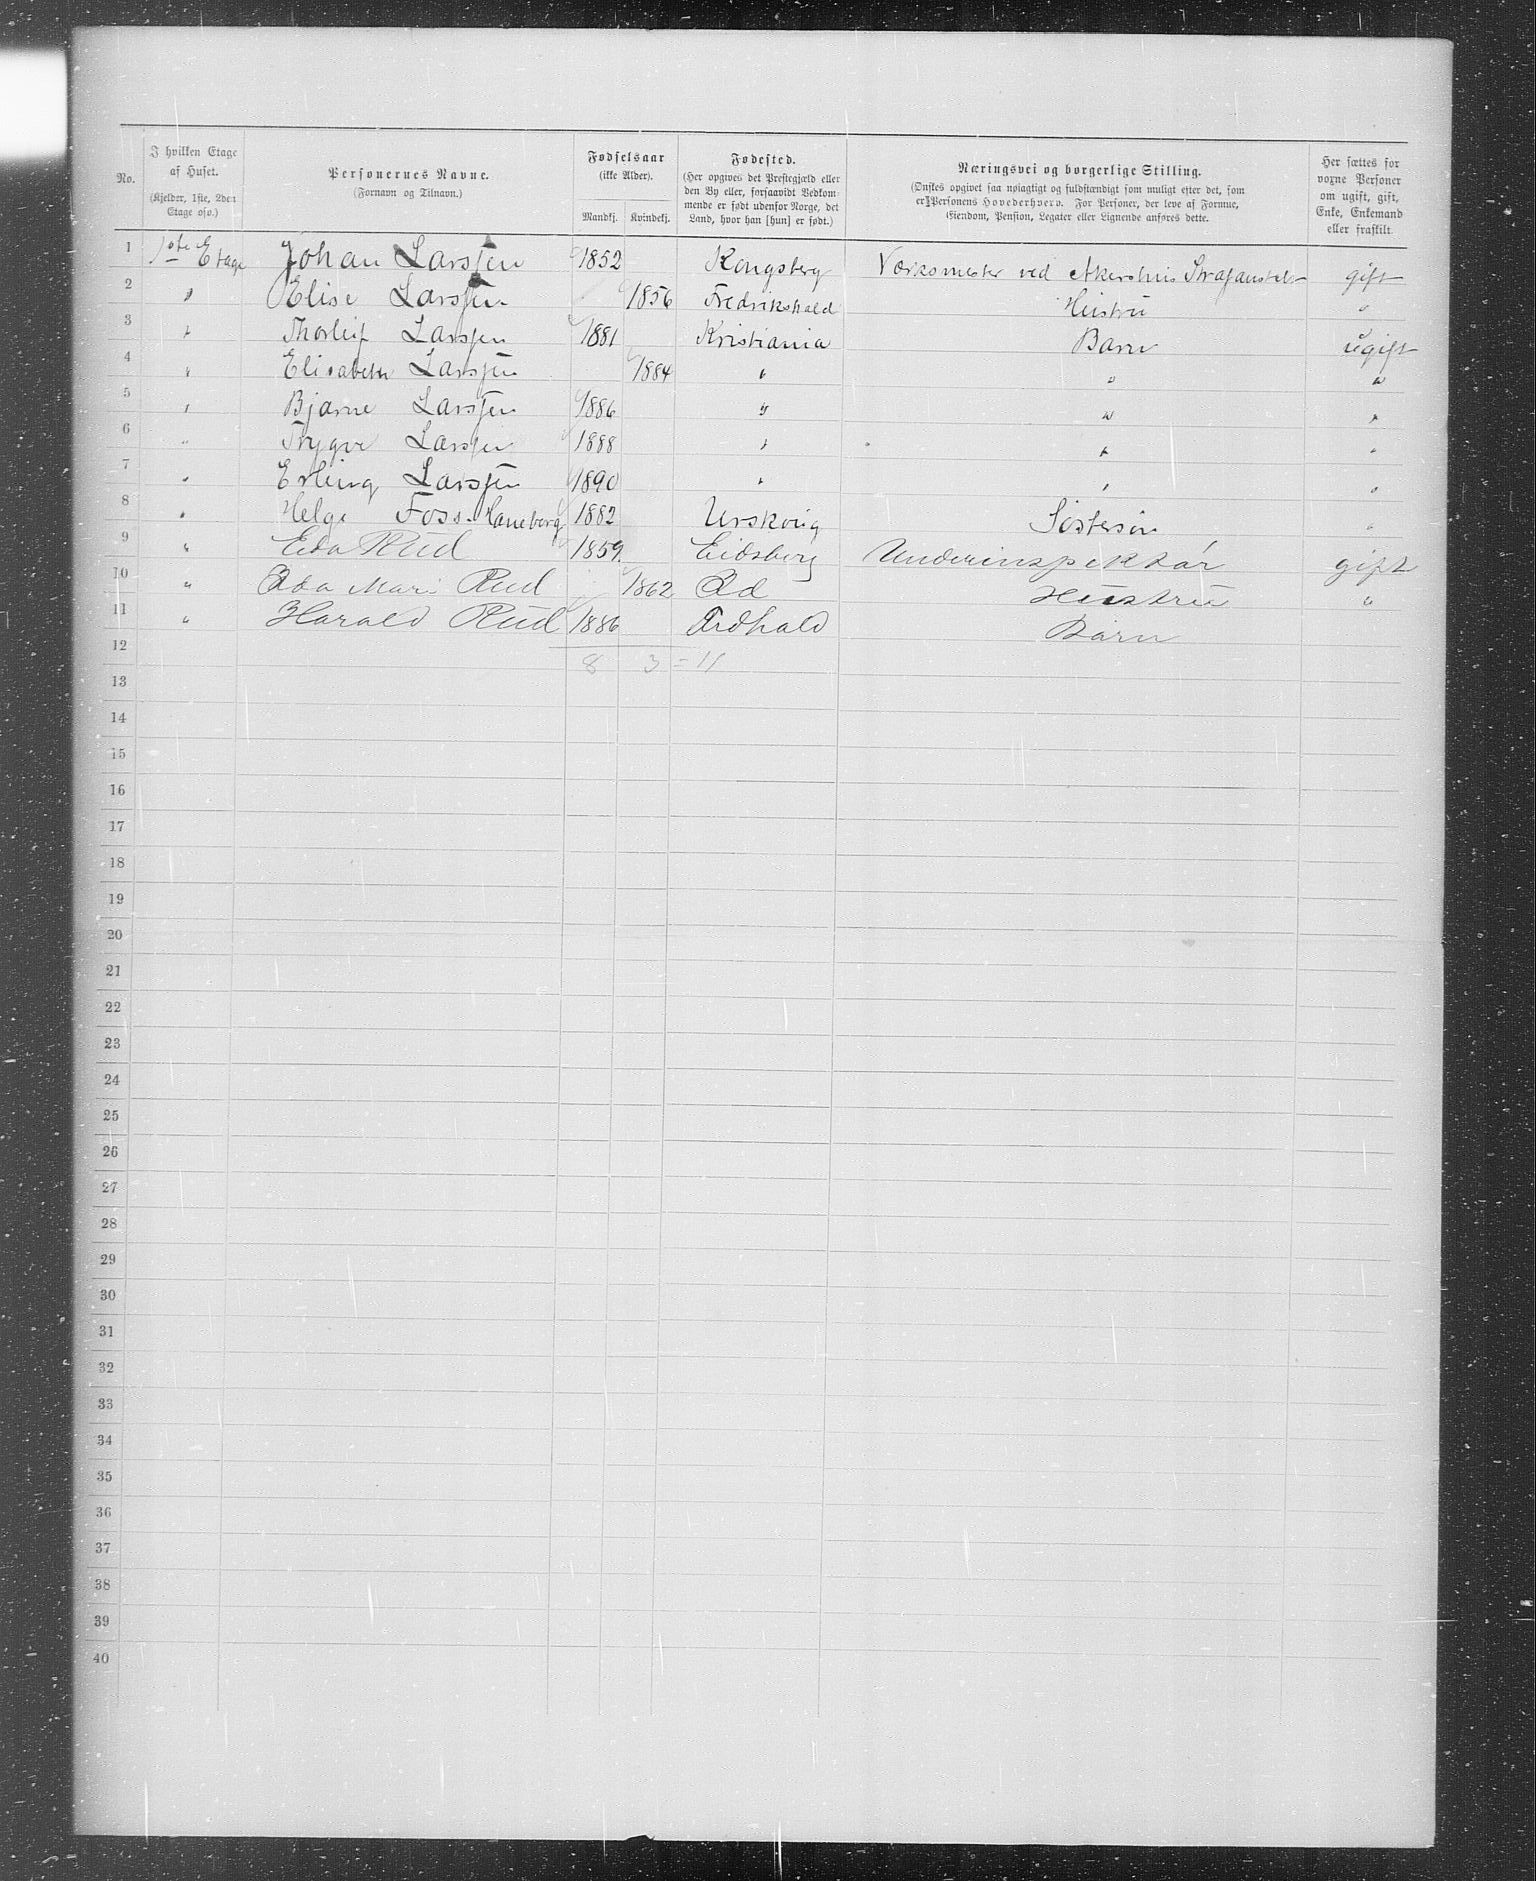 No. | I hvilken Etage af Huset. (Kjelder, 1ste, 2den Etage osv.) | Personernes Navne. (Fornavn og Tilnavn.) | Fødselsaar (ikke Alder). Mandkj. | Kvindekj. | Fødested. (Her opgives det Prestegjæld eller den By eller, forsaavidt Vedkommende er født udenfor Norge, det Land, hvor han [hun] er født.) | Næringsvei og borgerlige Stilling. (Ønskes opgivet saa nøiagtigt og fuldstændigt som muligt efter det, som er Personens Hovederhverv. For Personer, der leve af Formue, Eiendom, Pension, Legater eller Lignende anføres dette. | Her sættes for voxne Personer om ugift, gift, Enke, Enkemand eller fraskilt.
1 | 1ste Etage | Johan Larssen | 1852 | | Kongsberg | Værksmester ved Akershus Strafanstalt | gift
2 | " | Elise Larssen | | 1856 | Fredrikshald | Hustru | "
3 | " | Thorleif Larssen | 1881 | | Kristiania | Barn | ugift
4 | " | Elisabeth Larssen | | 1884 | " | " | "
5 | " | Bjarne Larssen | 1886 | | " | " | "
6 | " | Trygve Larssen | 1888 | | " | " | "
7 | " | Erling Larssen | 1890 | | " | " | "
8 | " | Helge Foss Haneborg | 1882 | | Urskoug | Søstersøn | "
9 | " | Rud | 1859 | | Eidsberg | Underinspektør | gift
10 | " | Mari Rud | | 1862 | Id | Hustru | "
11 | " | Harald Rud | 1886 | | Frdhald | Barn
12
8 3 = 11
13
14
15
16
17
18
19
20
21
22
23
24
25
26
27
28
29
30
31
32
33
34
35
36
37
38
39
40